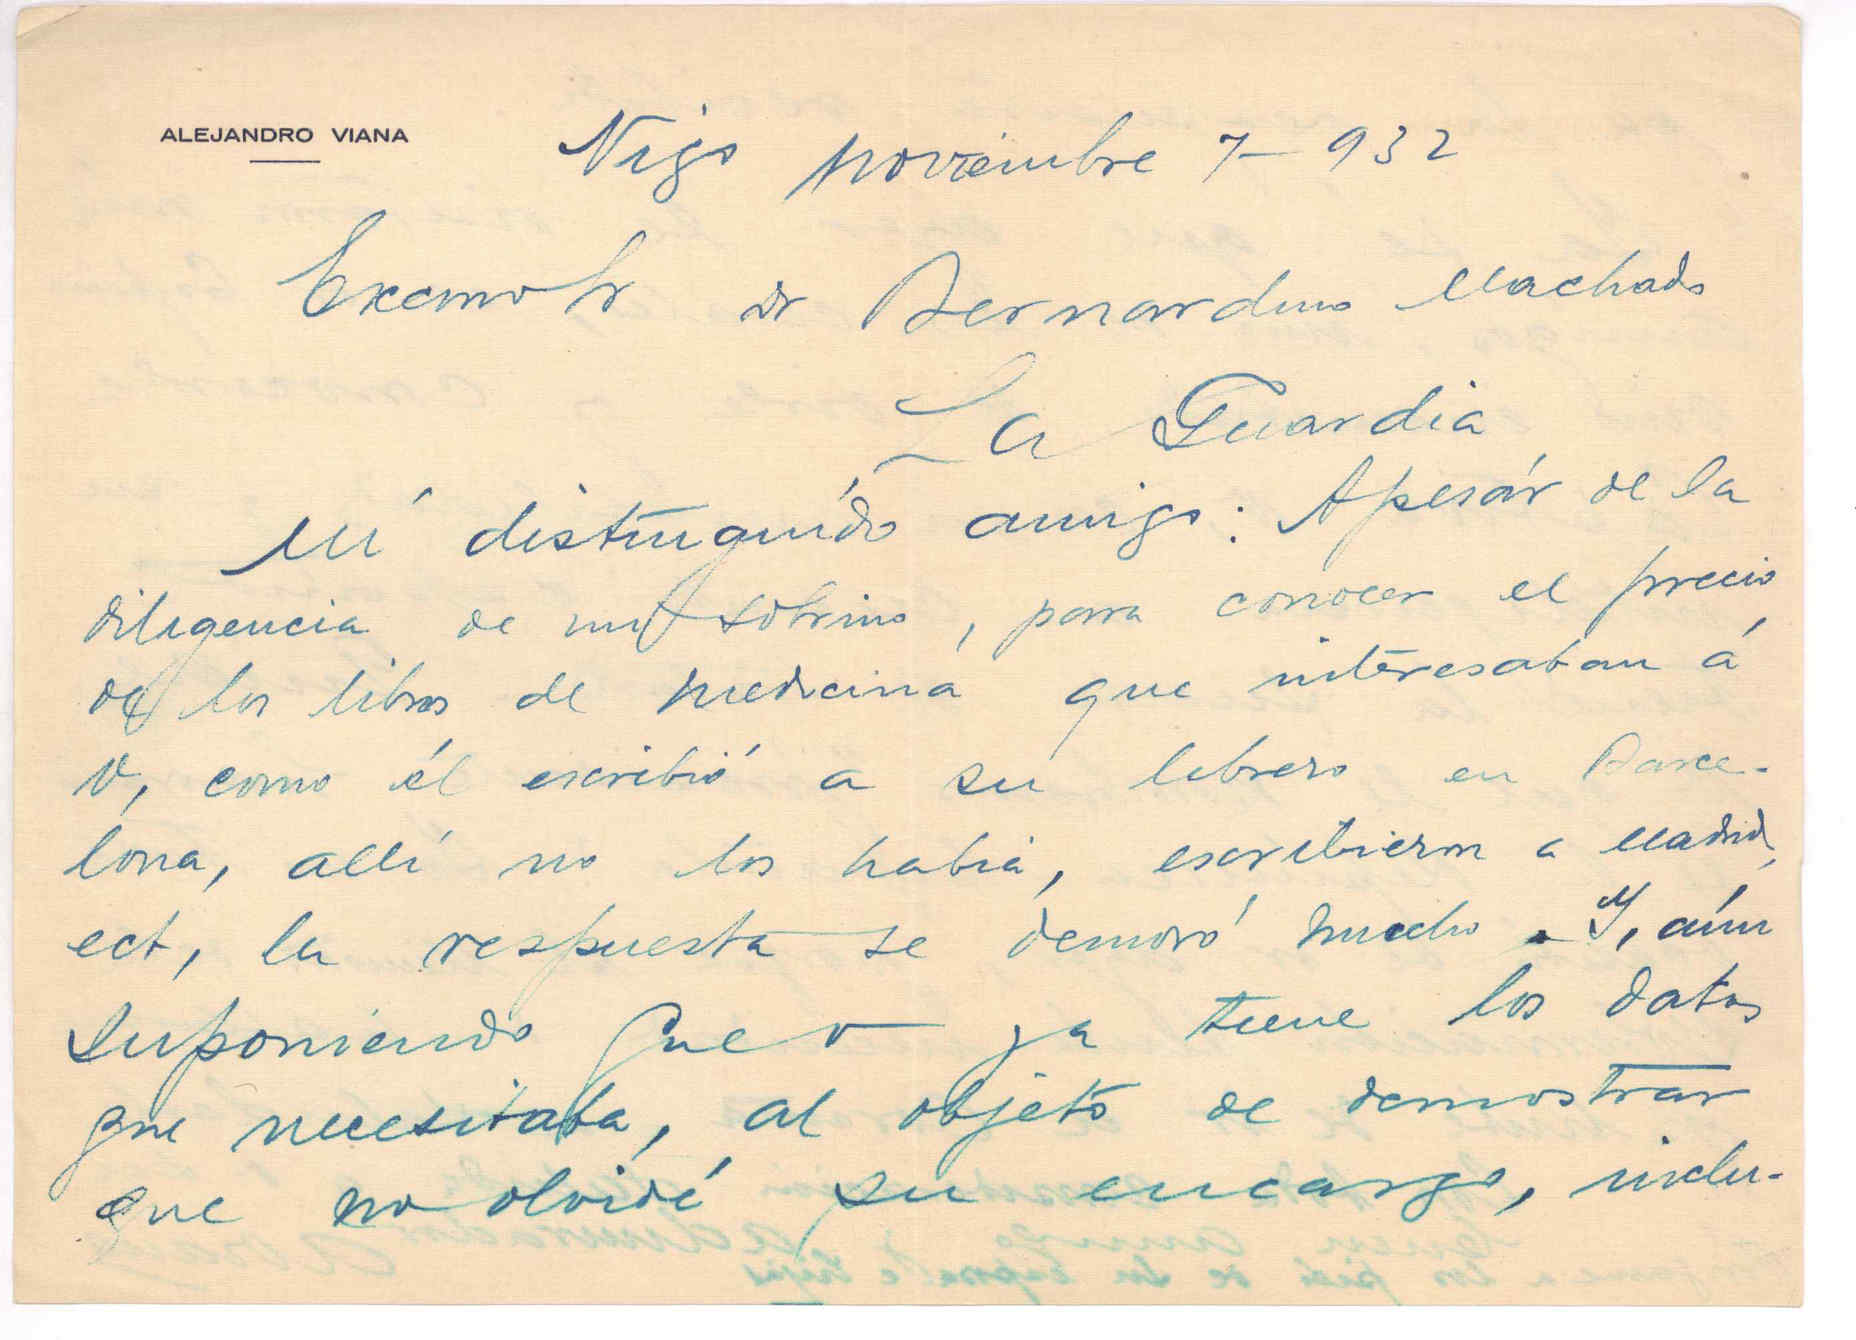 ALEJANDRO VIANA
Vigo noviembre 7 - 932
Excmo Sr Dr Bernardino Machado
La Guardia
Mí distinguído amigo: Apesár de la
diligencia de mi sobrino, para conocer el precio,
de los libros de medicina que interesaban á
V, como él escribió a su librero en Barce-
lona, allí no los habia, escribieron a Madrid,
ect, la respuesta se demoró mucho. Y, aún
suponiendo que V ya tiene los datos
que necesitaba, al objeto de demostrar
que no olvidé su encargo, inclu-